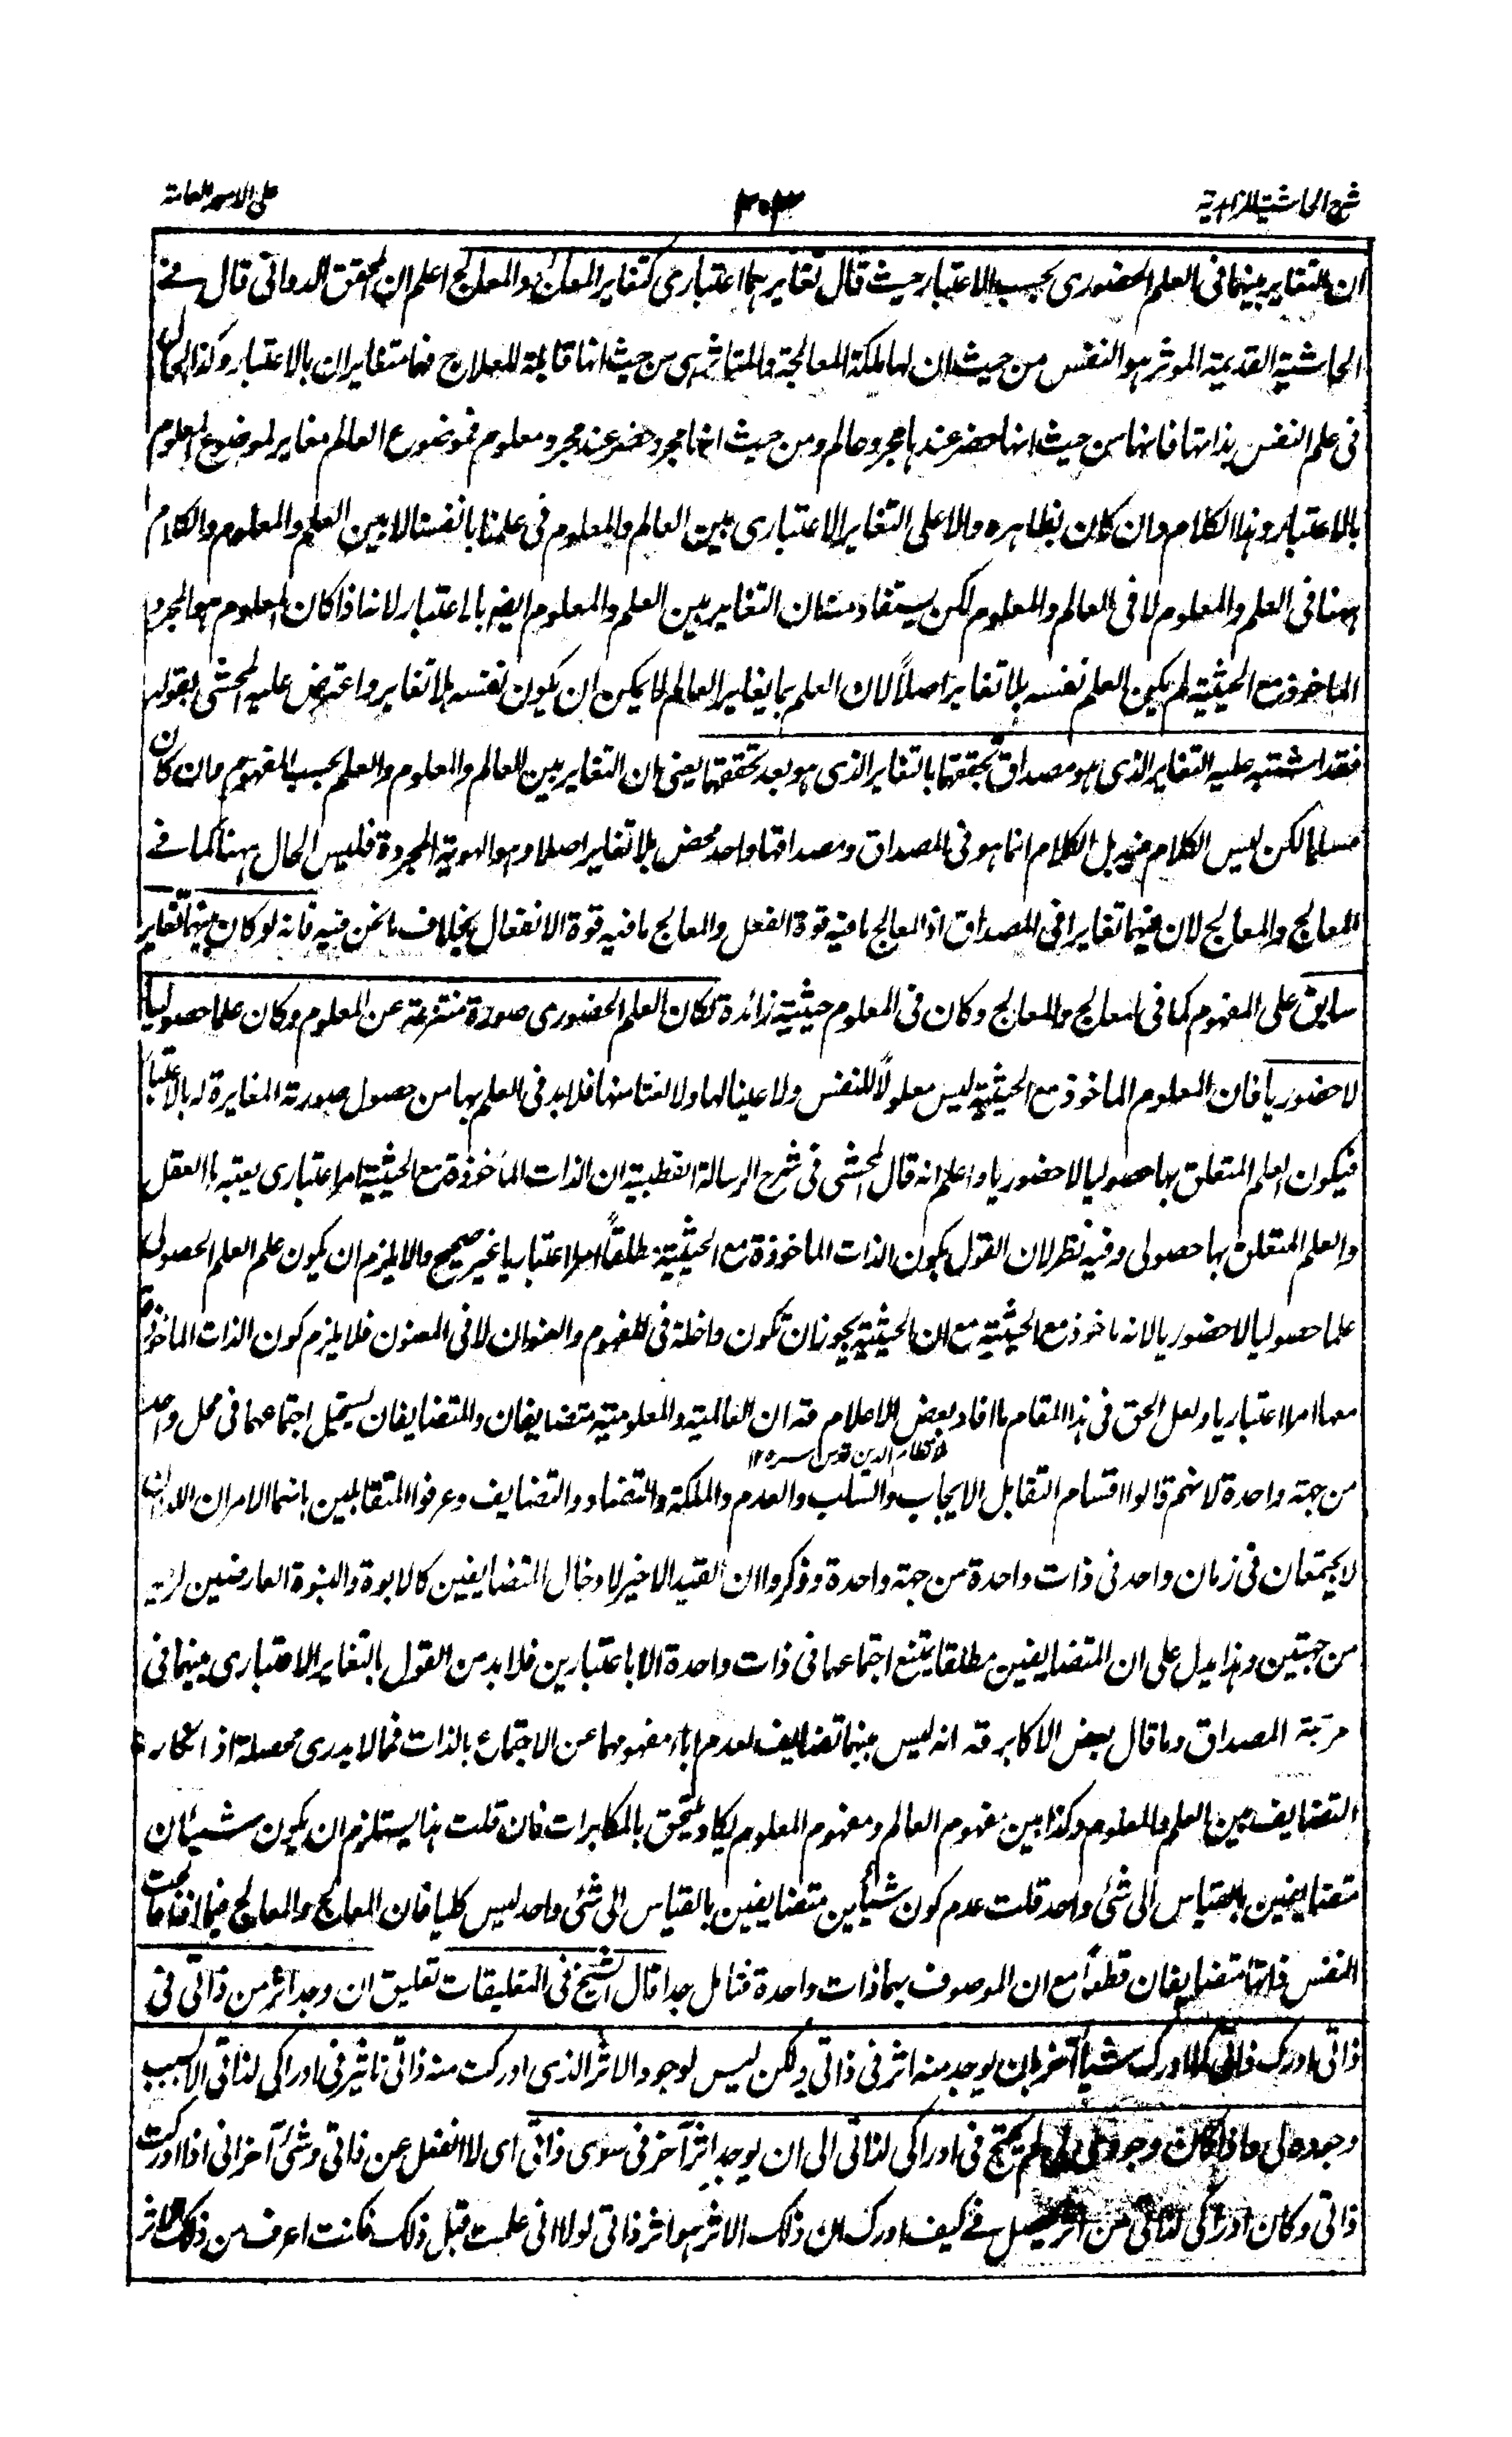 شرح الحاشية الزاهدية
٣٠٣
على الامور العامة
ان التغاير بينهما فى العلم الحضورى بحسب الاعتبار حيث قال تغايرهما اعتبارى كتغاير المعالج والمعالج اعلم ان المحقق الدوانى قال فے
الحاشية القديمة الموثر هو النفس من حيث ان لها ملكة المعالجة والمتاثر هى من حيث انها قابلة للعلاج فهما متغايران بالاعتبار وكذا الحال
فى علم النفس بذاتها فانها من حيث انها حضر عندها مجرد عالم ومن حيث انها مجرد حضر عند مجرد معلوم فموضوع العالم مغاير لموضوع المعلوم
بالاعتبار وهذا الكلام وان كان بظاهره دالا على التغاير الاعتبارى بين العالم والمعلوم فى علمنا بانفسنا لا بين العلم والمعلوم والكلام
ههنا فى العلم والمعلوم لا فى العالم والمعلوم لكن يستفاد منه ان التغاير بين العلم والمعلوم ايضا بالاعتبار لانه اذا كان المعلوم هو المجرد
الماخوذ مع الحيثية لم يكن العلم نفسه بلا تغاير اصلاً لان العلم بما يغاير العالم لا يمكن ان يكون نفسه بلا تغاير واعترض عليه المحشى بقوله
فقد اشتبه عليه التغاير الذى هو مصداق تحققها بالتغاير الذى هو بعد تحققها يعنى ان التغاير بين العالم والمعلوم والعلم بحسب المفهوم وان كان
مسلما لكن ليس الكلام فيه بل الكلام انما هو فى المصداق ومصداقها واحد محض بلا تغاير اصلا وهو الهوية المجردة فليس الحال ههنا كما فے
المعالج والمعالج لان فيهما تغايرا فى المصداق اذ المعالج ما فيه قوة الفعل والمعالج ما فيه قوة الانفعال بخلاف ما نحن فيه فانه لو كان بينهما تغاير
سابق على المفهوم كما فى المعالج والمعالج وكان فى المعلوم حيثية زائدة لكان العلم الحضورى صورة منتزعة عن المعلوم وكان علما حصوليا
لا حضوريا فان المعلوم الماخوذ مع الحيثية ليس معلولاً للنفس ولا عينا لها ولا نعتا منها فلا بد فى العلم بها من حصول صورته المغايرة له بالاعتبار
فيكون العلم المتعلق بها حصوليا لا حضوريا واعلم انه قال المحشى فى شرح الرسالة القطبية ان الذات الماخوذة مع الحيثية امر اعتبارى يعتبرها العقل
والعلم المتعلق بها حصولى وفيه نظر لان القول بكون الذات الماخوذة مع الحيثية مطلقاً امرا اعتباريا غير صحيح والا يلزم ان يكون علم العلم الحصولى
علما حصوليا لا حضوريا لانه ماخوذ مع الحيثية مع ان الحيثية يجوز ان تكون داخلة فى المفهوم والعنوان لا فى المعنون فلا يلزم كون الذات الماخوذة
معها امرا اعتباريا ولعل الحق فى هذا المقام ما افاد بعض الاعلام قه ان العالمية والمعلومية متضايفان والمتضايفان يستحيل اجتماعهما فى محل واحد
ملا نظام الدين قدس سره ١٢
من جهة واحدة لانهم قالوا اقسام التقابل الايجاب والسلب والعدم والملكة والتضاد والتضايف وعرفوا المتقابلين بانهما الامران اللذان
لا يجتمعان فى زمان واحد فى ذات واحدة من جهة واحدة وذكروا ان القيد الاخير لادخال المتضايفين كالابوة والبنوة العارضين لزيد
من جهتين وهذا يدل على ان المتضايفين مطلقا يمتنع اجتماعهما فى ذات واحدة الا باعتبارين فلا بد من القول بالتغاير الاعتبارى بينهما فى
مرتبة المصداق وما قال بعض الاكابر قه انه ليس بينهما تضايف لعدم اباء مفهومهما عن الاجتماع بالذات فمما لا يدرى محصله اذ انكار
التضايف بين العلم والمعلوم وكذا بين مفهوم العالم ومفهوم المعلوم يكاد يلتحق بالمكابرات فان قلت هذا يستلزم ان يكون شيئان
متضايفين بالقياس الى شئ واحد قلت عدم كون شيئين متضايفين بالقياس الى شئ واحد ليس كليا فان المعالج والمعالج فيما اذا عالجت
النفس ذاتها متضايفان قطعاً مع ان الموصوف بهما ذات واحدة فتامل جدا قال الشيخ فى التعليقات تعليق ان وجد اثر من ذاتى فى
ذاتى ادرك ذاتى كما ادرك شيئاً آخر بان يوجد منه اثر فى ذاتى ولكن ليس لوجود الاثر الذى ادركت منه ذاتى تاثير فى ادراكى لذاتى الا بسبب
وجوده لى فاذا كان وجودى لى لم يحتج فى ادراكى لذاتى الى ان يوجد اثر آخر فى سوى ذاتى اى لا انفعل عن ذاتى وشئ آخر انى اذا ادركت
ذاتى وكان ادراكى لذاتى من اثر يحصل فے كيف ادرك ان ذلك الاثر هو اثر ذاتى لولا انى علمت قبل ذلك فكنت اعرف من ذلك الاثر